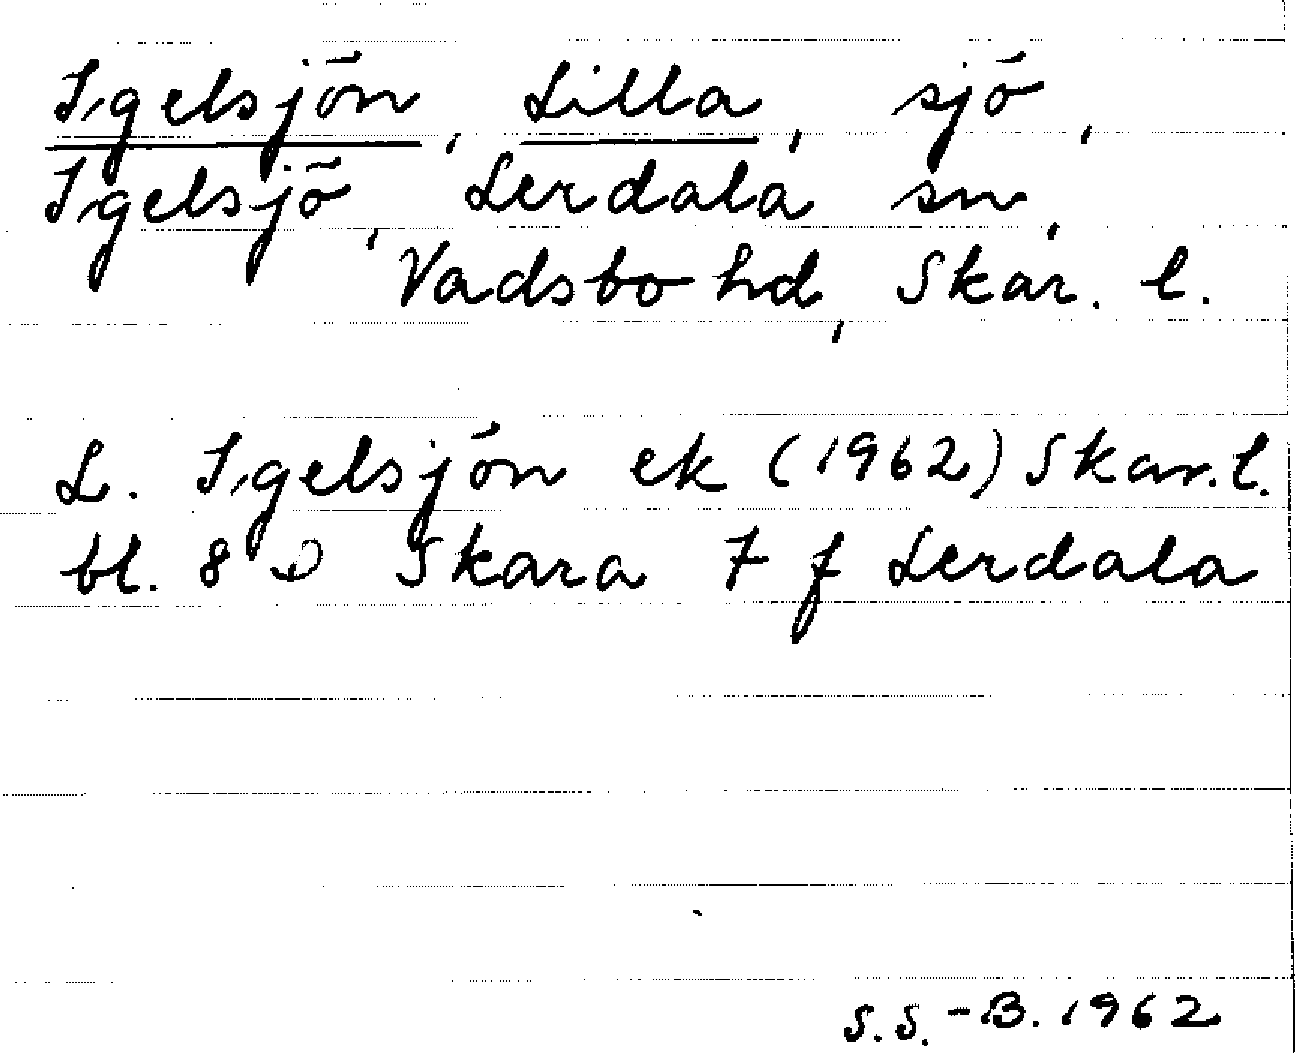 Igelsjön, Lilla, sjö,
Igelsjö, Lerdala sn,
Vadsbo hd, Skar. l.
L. Igelsjön ek (1962) Skar. l.
bl. 8 D Skara 7 f Lerdala
S.S.-B. 1962